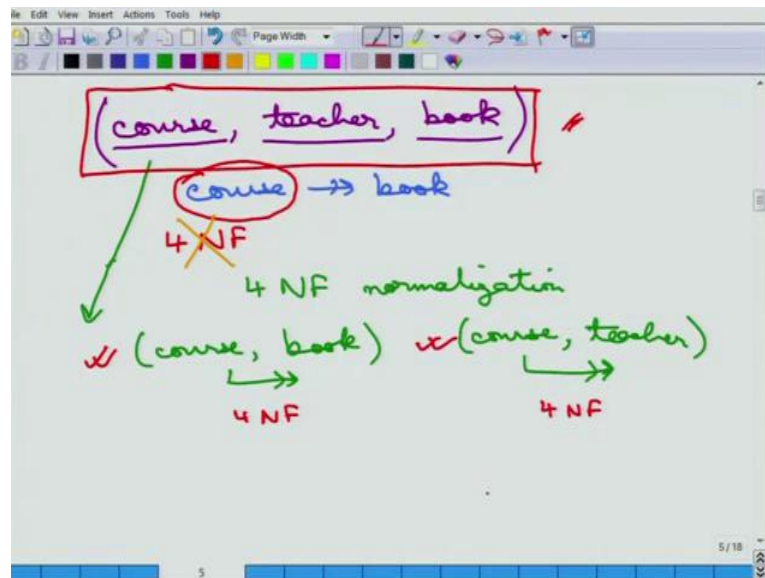 File Edit View Insert Actions Tools Help
Page Width
B I
(course, teacher, book)
course →→ book
4 NF
4 NF normalization
(course, book) (course, teacher)
4 NF 4 NF
5/18
5